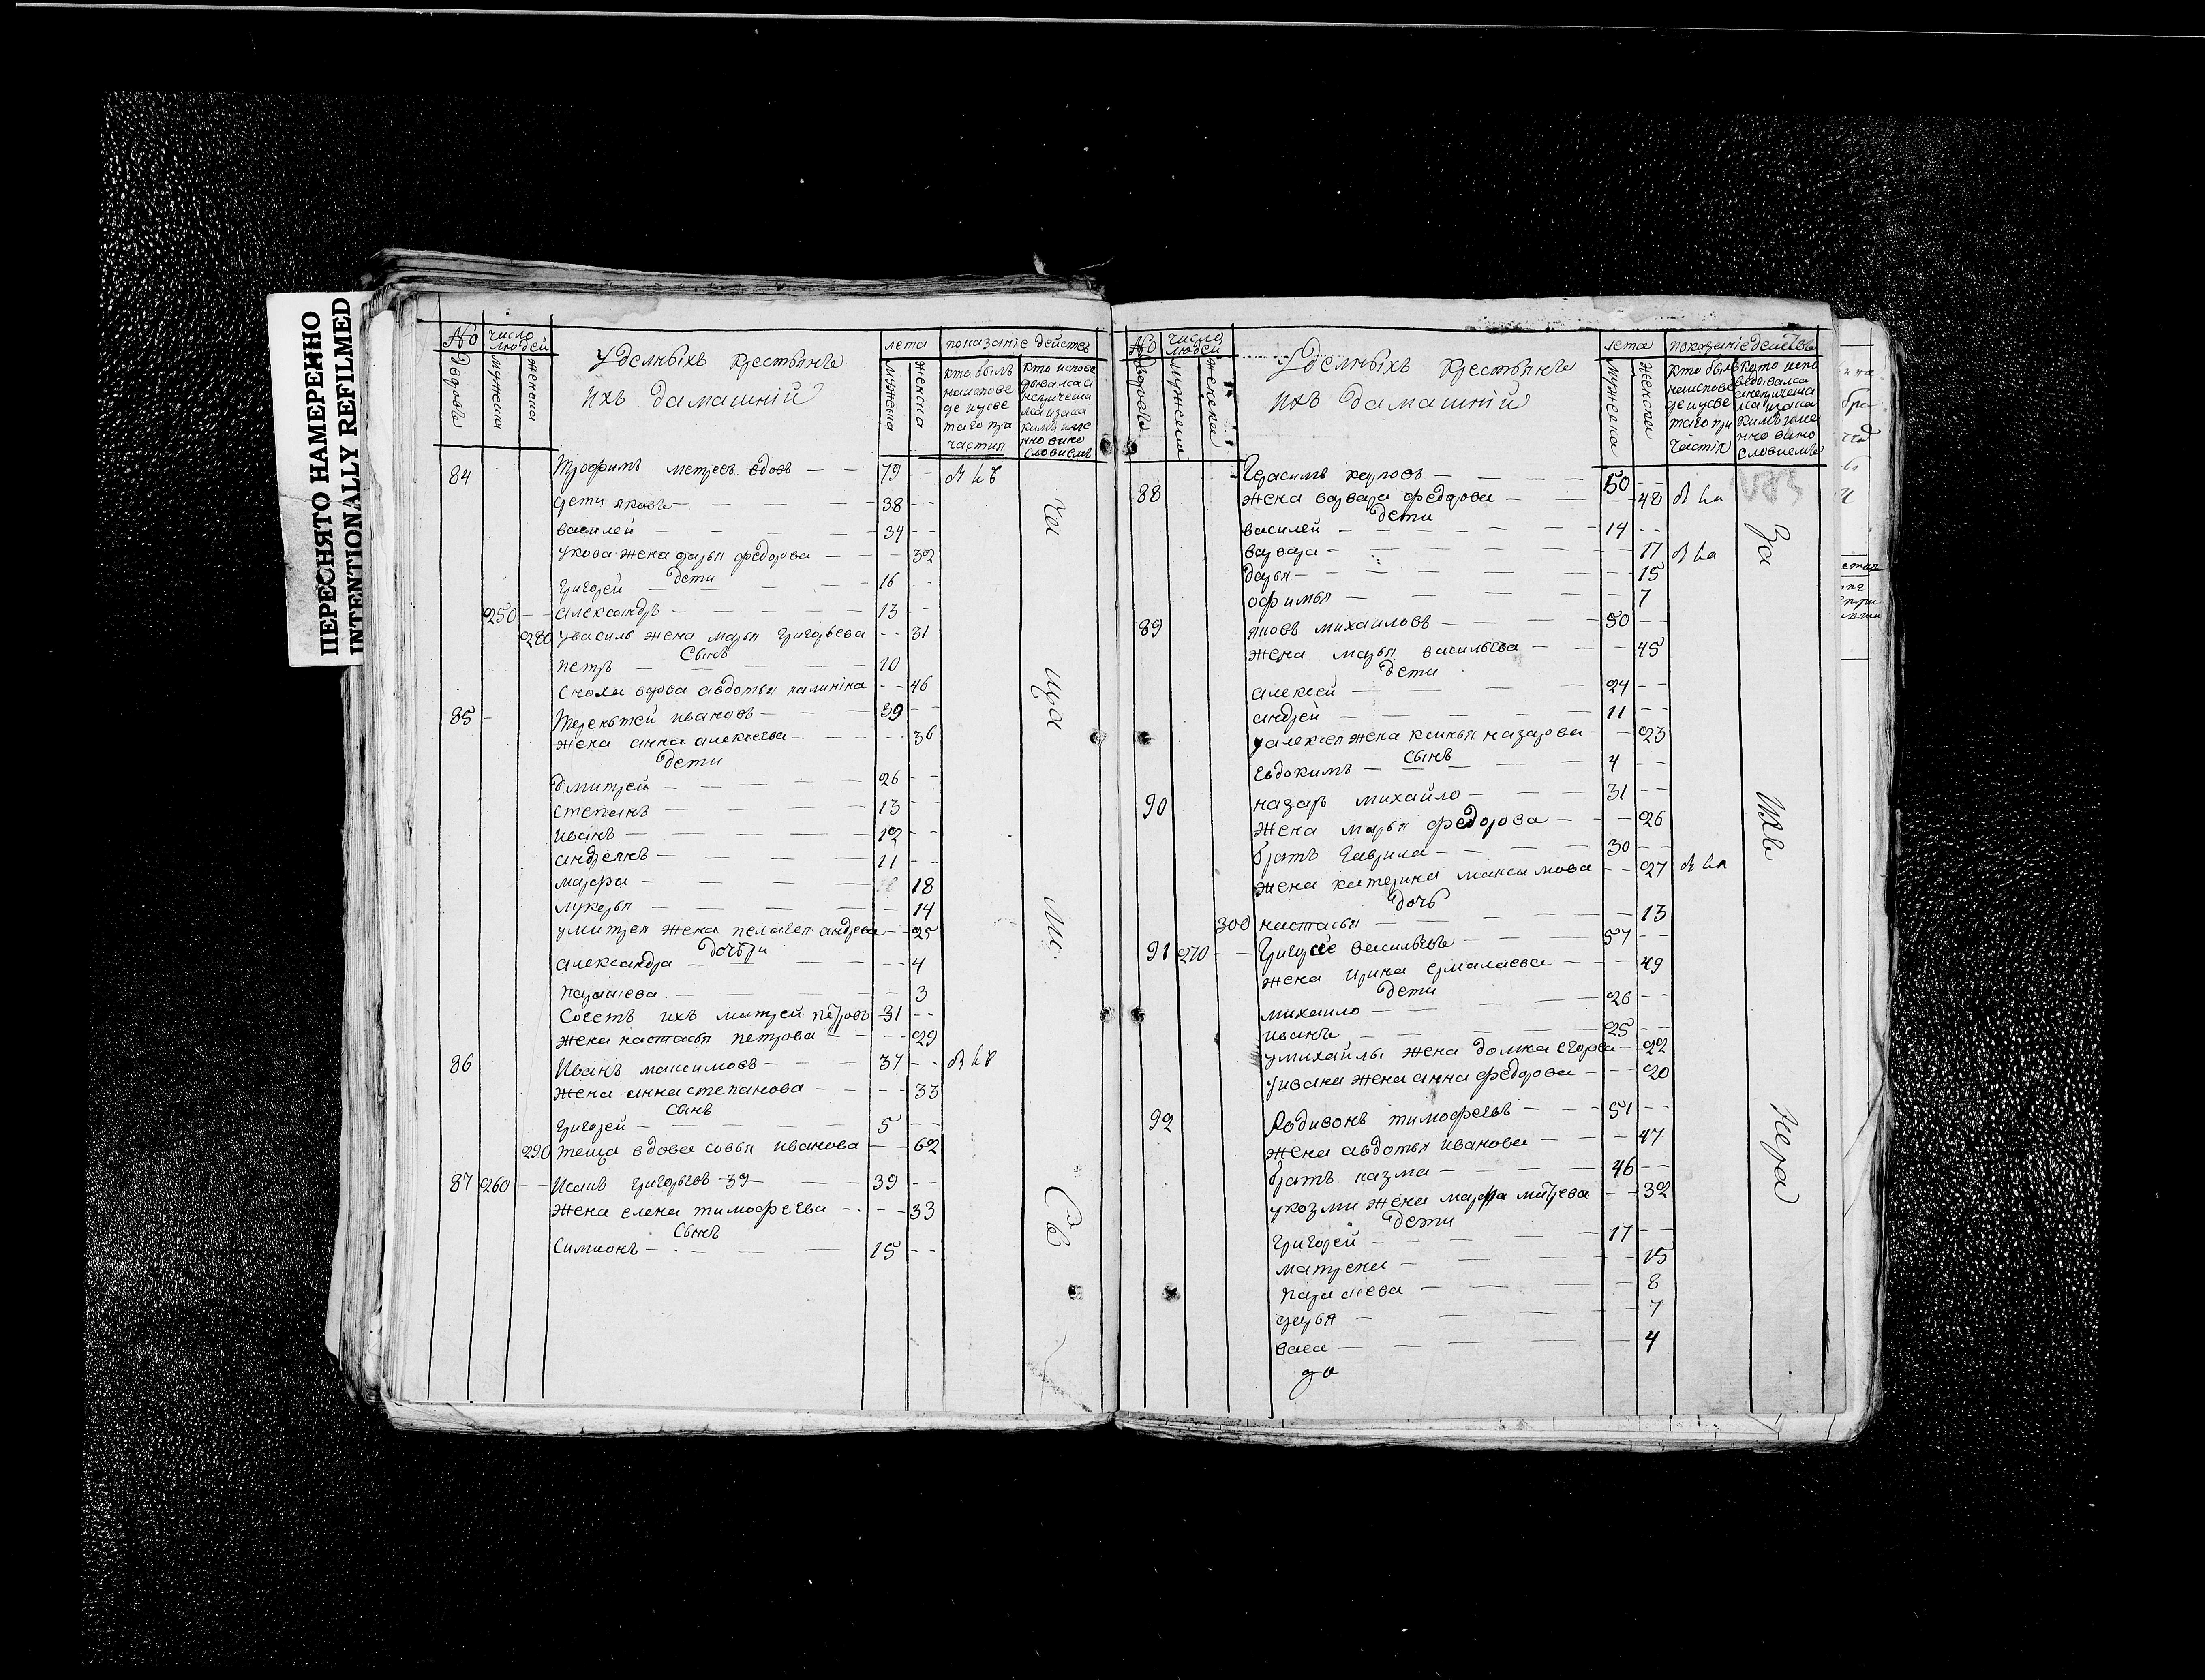 ПЕРЕСНЯТО НАМЕРЕННО
INTENTIONALLY REFILMED
№ дворовъ
число людей
мужеска
женска
Уделныхъ крестьянъ
ихъ дамашнiй
лета
мужеска
женска
показанiе действъ
84 Трофимъ вдовъ — 79
дети яковъ — 38
василей — 34
укова жена дарья федорова — 32
дети
григорей — 16
250 александръ — 13
280 увасиль жена марья григорьева — 31
Сынъ
петръ — 10
Сноха вдова авдотья калинина — 46
85 Терентей ивановъ — 39
жена анна алексеева — 36
дети
дмитрей — 26
степанъ — 13
иванъ — 12
андреянъ — 11
марфа — 18
лукерья — 14
умитрея жена пелагея андрева — 25
дочьри
александра — 4
парасіева — 3
Соестъ ихъ митрей петровъ 31
жена настасья петрова — 29
86 Иванъ максимовъ — 37
жена анна степанова — 33
сынъ
григорей — 5
290 теща вдова совья иванова — 62
87 260 Исаия григорьевъ 39 — 39
жена елена тимофеева — 33
Сынъ
Симионъ — 15
ча
ща
ми
Св
№ дворовъ
число людей
мужеска
женска
Уделныхъ крестьянъ
ихъ дамашнiй
лета
мужеска
женска
показанiе действъ
183
88 Герасимъ карповъ — 50
жена варвара федорова — 48
дети
василей — 14
варвара — 17
дарья — 15
офимья — 7
89 яковъ михаиловъ — 50
жена марья васильева — 45
дети
алексей — 24
андрей — 11
уалексея жена ксинья назарова — 23
Сынъ
евдокимъ — 4
90 назаръ михайло — 31
жена марья федорова — 26
братъ гаврила — 30
жена катерина максимова — 27
дочь
300 настасья — 13
91 270 Григорей васильевъ — 57
жена ирина ермалаева — 49
дети
михаило — 26
иванъ — 25
умихайлы жена домна егорва — 22
уивана жена анна федорова — 20
92 Родивонъ тимофеевъ — 51
жена авдотья иванова — 47
братъ казма — 46
укозми жена марфа митрева — 32
дети
григорей — 17
матрена — 15
парасіева — 8
дарья — 7
васа — 4
За
Ихъ
Iерей